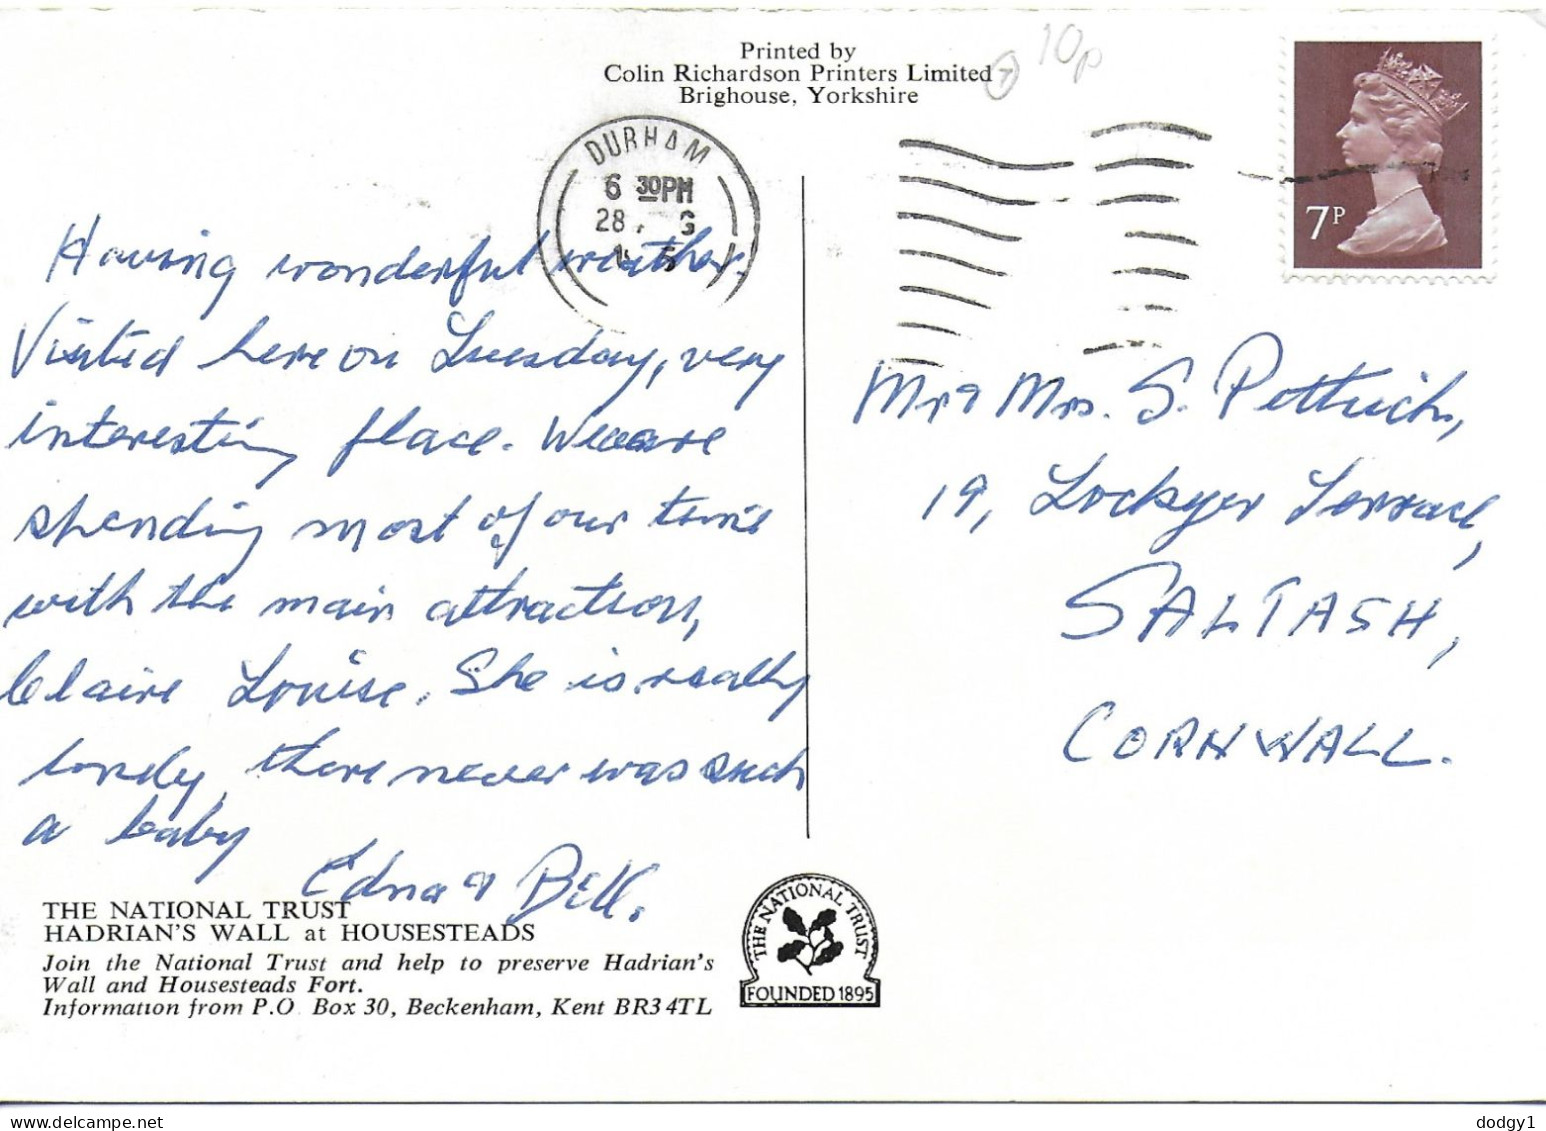 Printed by
Colin Richardson Printers Limited
Brighouse, Yorkshire
10p
DURHAM
6 30PM
28 G
5
7P
Having wonderful weather.
Visited here on Tuesday, very
interesting place. We are
spending most of our time
with the main attraction,
Claire Louise. She is really
lovely, there never was such
a baby
Edna & Bill.
Mr & Mrs. S. Pethick,
19, Lockyer Terrace,
SALTASH,
CORNWALL.
THE NATIONAL TRUST
HADRIAN'S WALL at HOUSESTEADS
Join the National Trust and help to preserve Hadrian's
Wall and Housesteads Fort.
Information from P.O. Box 30, Beckenham, Kent BR3 4TL
THE NATIONAL TRUST
FOUNDED 1895
dodgy1